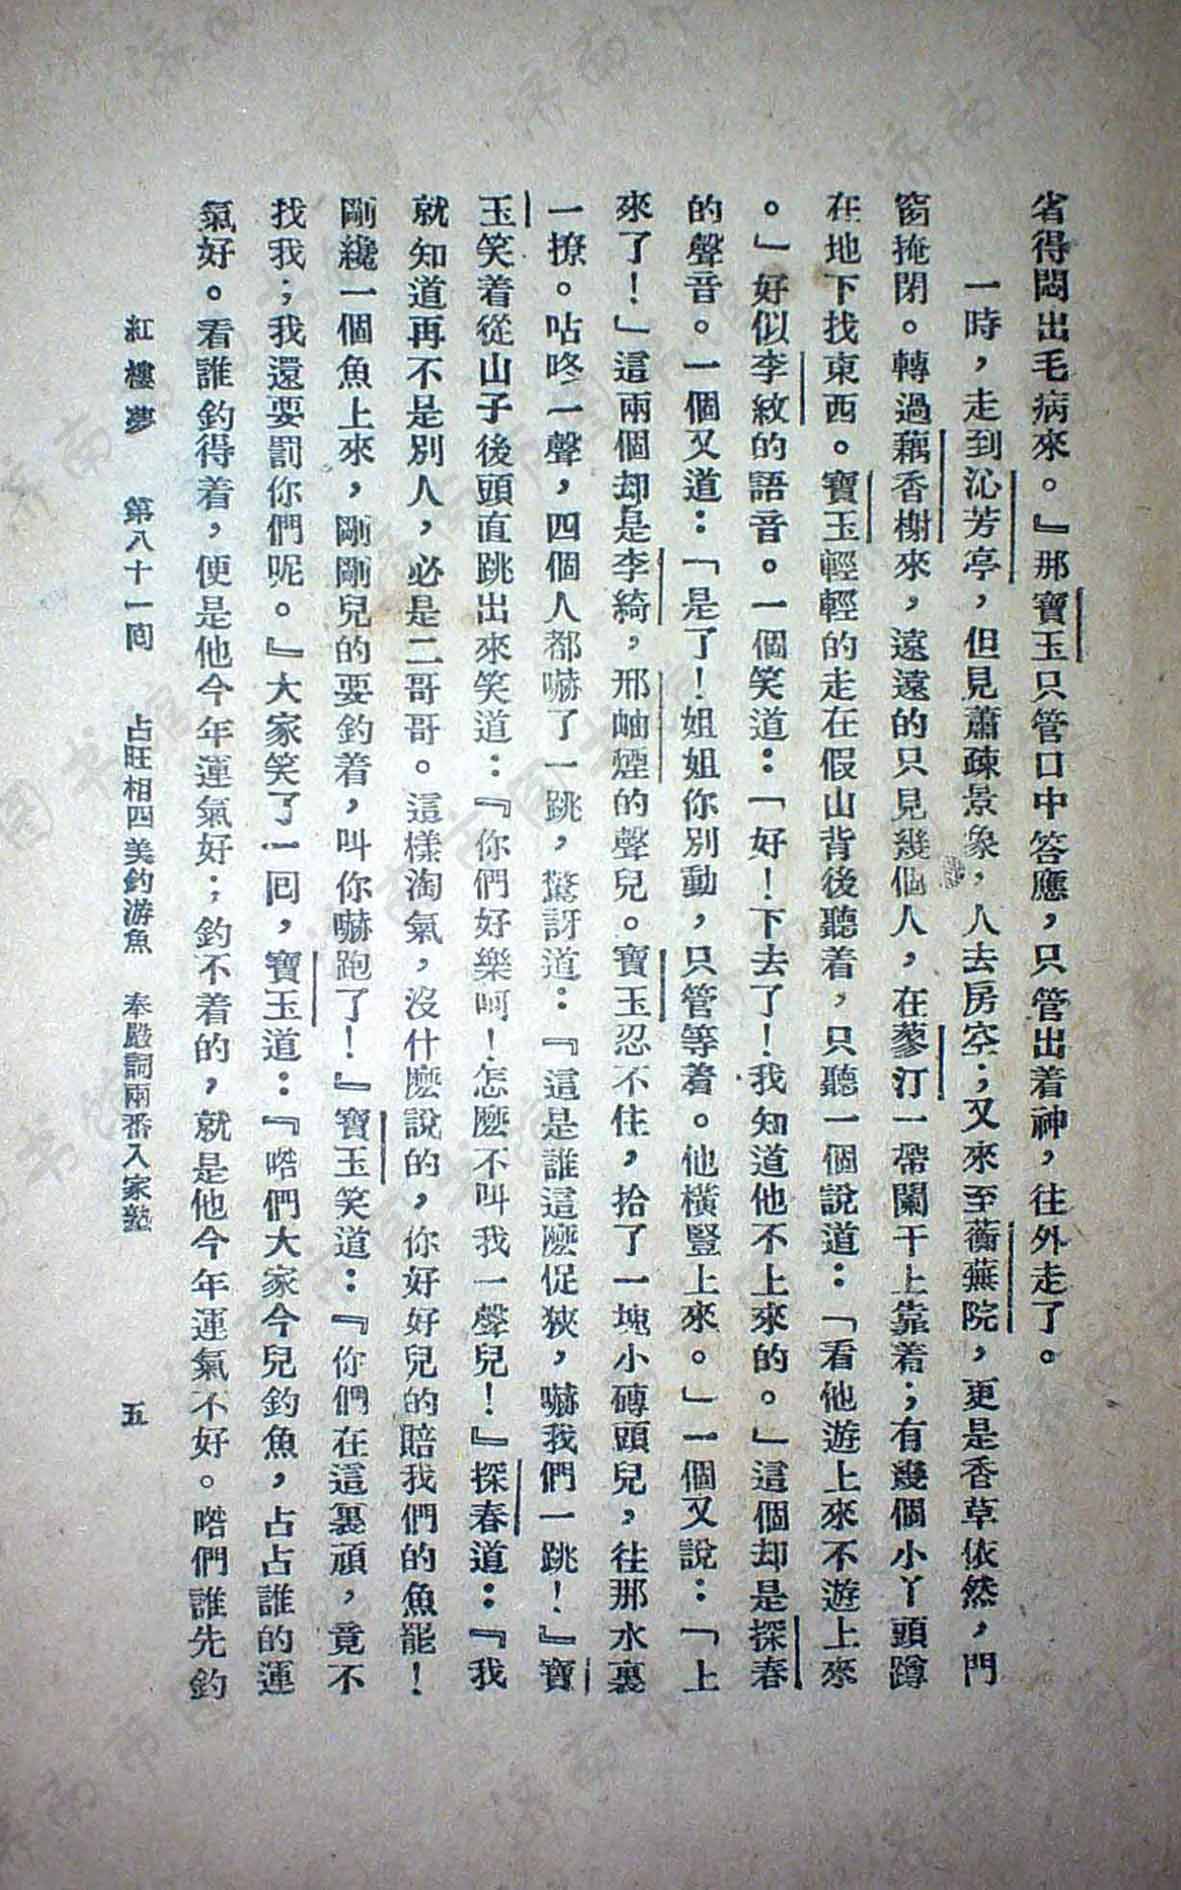 省得悶出毛病來。』那寶玉只管口中答應，只管出着神，往外走了。
一時，走到沁芳亭，但見蕭疎景象，人去房空；又來至蘅蕪院，更是香草依然，門
窗掩閉。轉過藕香榭來，遠遠的只見幾個人，在蓼汀一帶闌干上靠着；有幾個小丫頭蹲
在地下找東西。寶玉輕輕的走在假山背後聽着，只聽一個說道：「看他遊上來不遊上來
。」好似李紋的語音。一個笑道：「好！下去了！我知道他不上來的。」這個却是探春
的聲音。一個又道：「是了！姐姐你別動，只管等着。他橫豎上來。」一個又說：「上
來了！」這兩個却是李綺，邢岫煙的聲兒。寶玉忍不住，拾了一塊小磚頭兒，往那水裏
一撩。咕咚一聲，四個人都嚇了一跳，驚訝道：『這是誰這麼促狹，嚇我們一跳！』寶
玉笑着從山子後頭直跳出來笑道：『你們好樂呵！怎麼不叫我一聲兒！』探春道：『我
就知道再不是別人，必是二哥哥。這樣淘氣，沒什麼說的，你好好兒的賠我們的魚罷！
剛纔一個魚上來，剛剛兒的要釣着，叫你嚇跑了！』寶玉笑道：『你們在這裏頑，竟不
找我；我還要罰你們呢。』大家笑了一回，寶玉道：『喒們大家今兒釣魚，占占誰的運
氣好。看誰釣得着，便是他今年運氣好；釣不着的，就是他今年運氣不好。喒們誰先釣
紅樓夢 第八十一回 占旺相四美釣游魚 奉嚴詞兩番入家塾 五